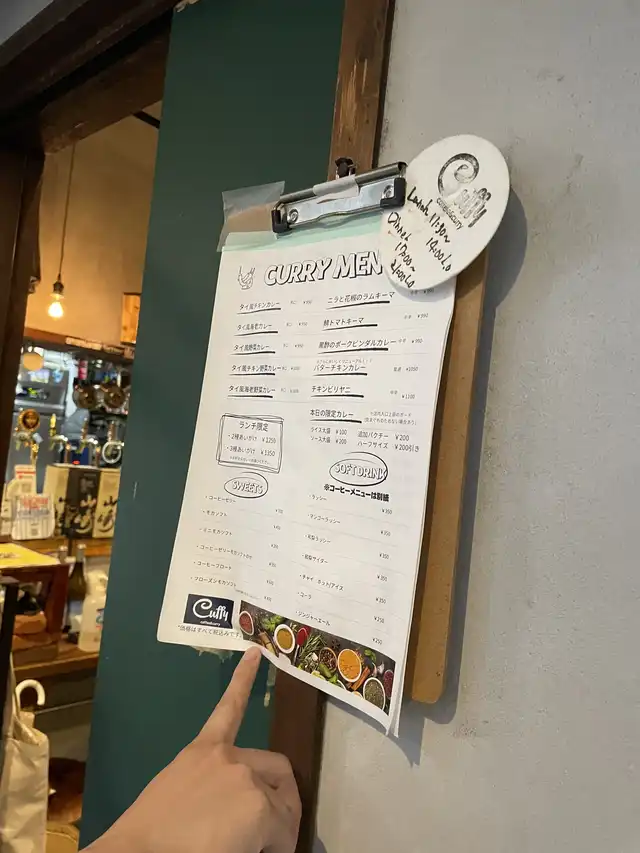 Cuffy
coffee&curry
Lunch 11:30~
14:00L.o
Dinner
17:00~
CURRY MEN
タイ風チキンカレー
タイ風海老カレー
タイ風野菜カレー
タイ風チキン野菜カレー
タイ風海老野菜カレー
ニラと花椒のラムキーマ
鯖トマトキーマ
黒酢のポークビンダルカレー
バターチキンカレー ¥1050
チキンビリヤニ ¥1100
本日の限定カレー
ライス大盛 ¥100
ソース大盛 ¥200
追加パクチー ¥200
ハーフサイズ ¥200引き
ランチ限定
・2種あいがけ ¥1250
・3種あいがけ ¥1350
SWEETS
・コーヒーゼリー
・モカソフト
・ミニモカソフト
・コーヒーゼリーモカソフトのせ
・コーヒーフロート
・フローズンモカソフト
SOFT DRINK
※コーヒーメニューは別紙
・ラッシー
・マンゴーラッシー ¥350
・和梨ラッシー ¥350
・和梨サイダー ¥350
・チャイ ホット/アイス ¥350
・コーラ ¥250
・ジンジャーエール ¥250
Cuffy
coffee&curry
*価格はすべて税込みです